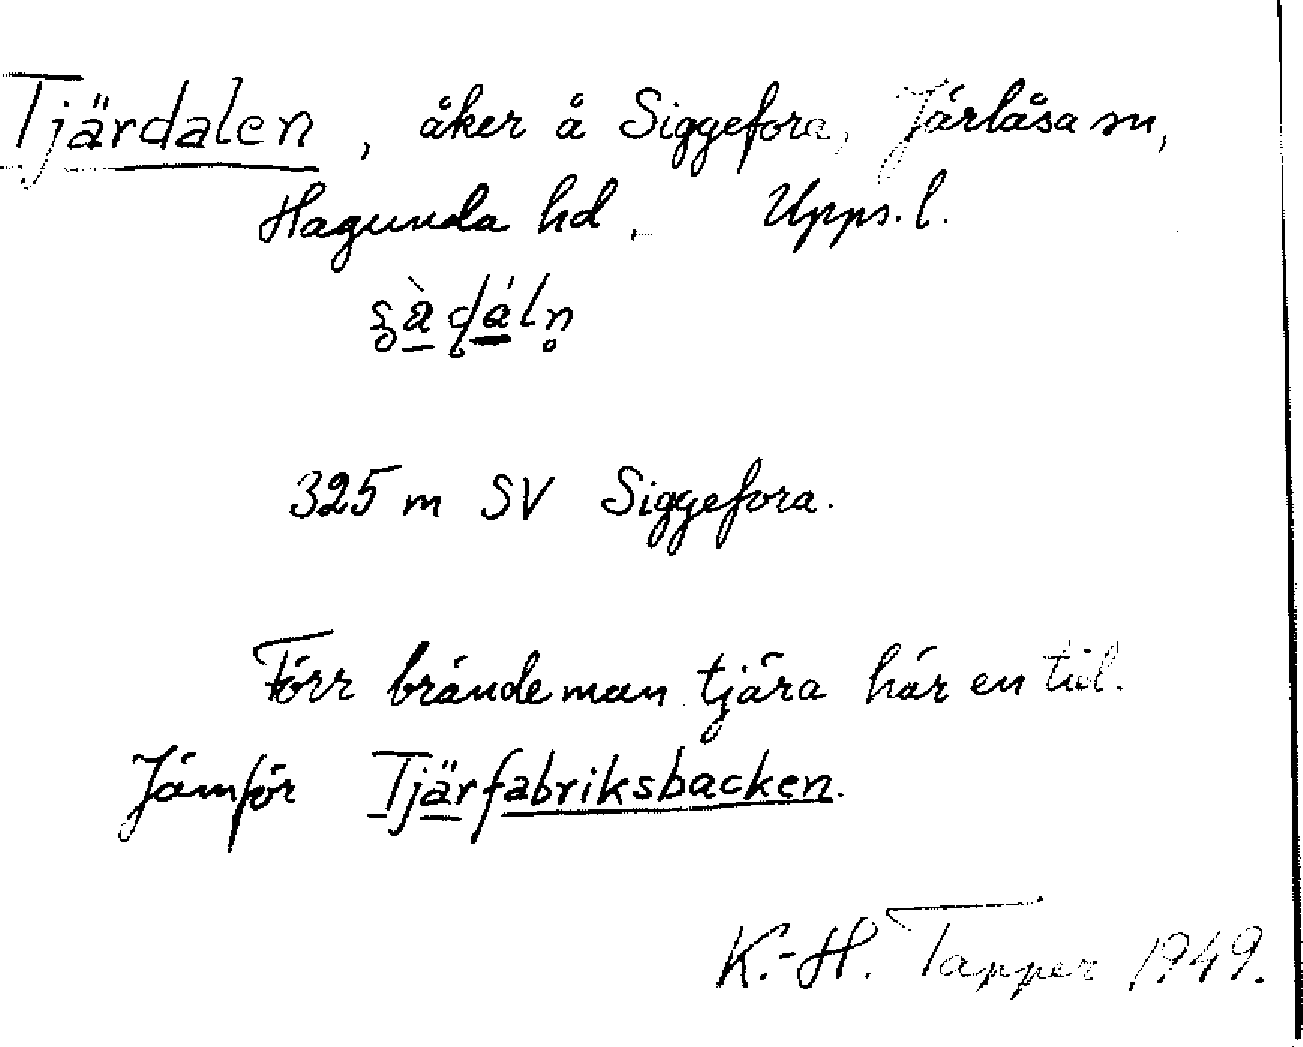 Tjärdalen, åker å Siggefora, Järlåsa sn,
Hagunda hd. Upps. l.
325 m SV Siggefora.
Förr brände man tjära här en tid.
Jämför Tjärfabriksbacken.
K.-H. Tapper 1949.